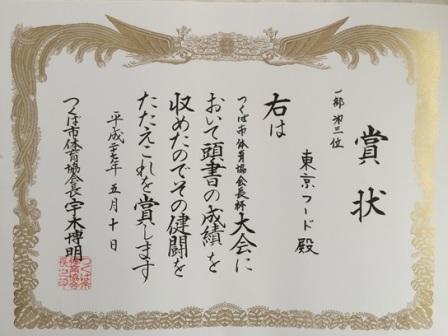 賞状
一部 第三位
東京フード殿
右は
つくば市体育協会長杯大会に
おいて頭書の成績を
収めたのでその健闘を
たたえこれを賞します
平成二十七年五月十日
つくば市体育協会長宇木博明